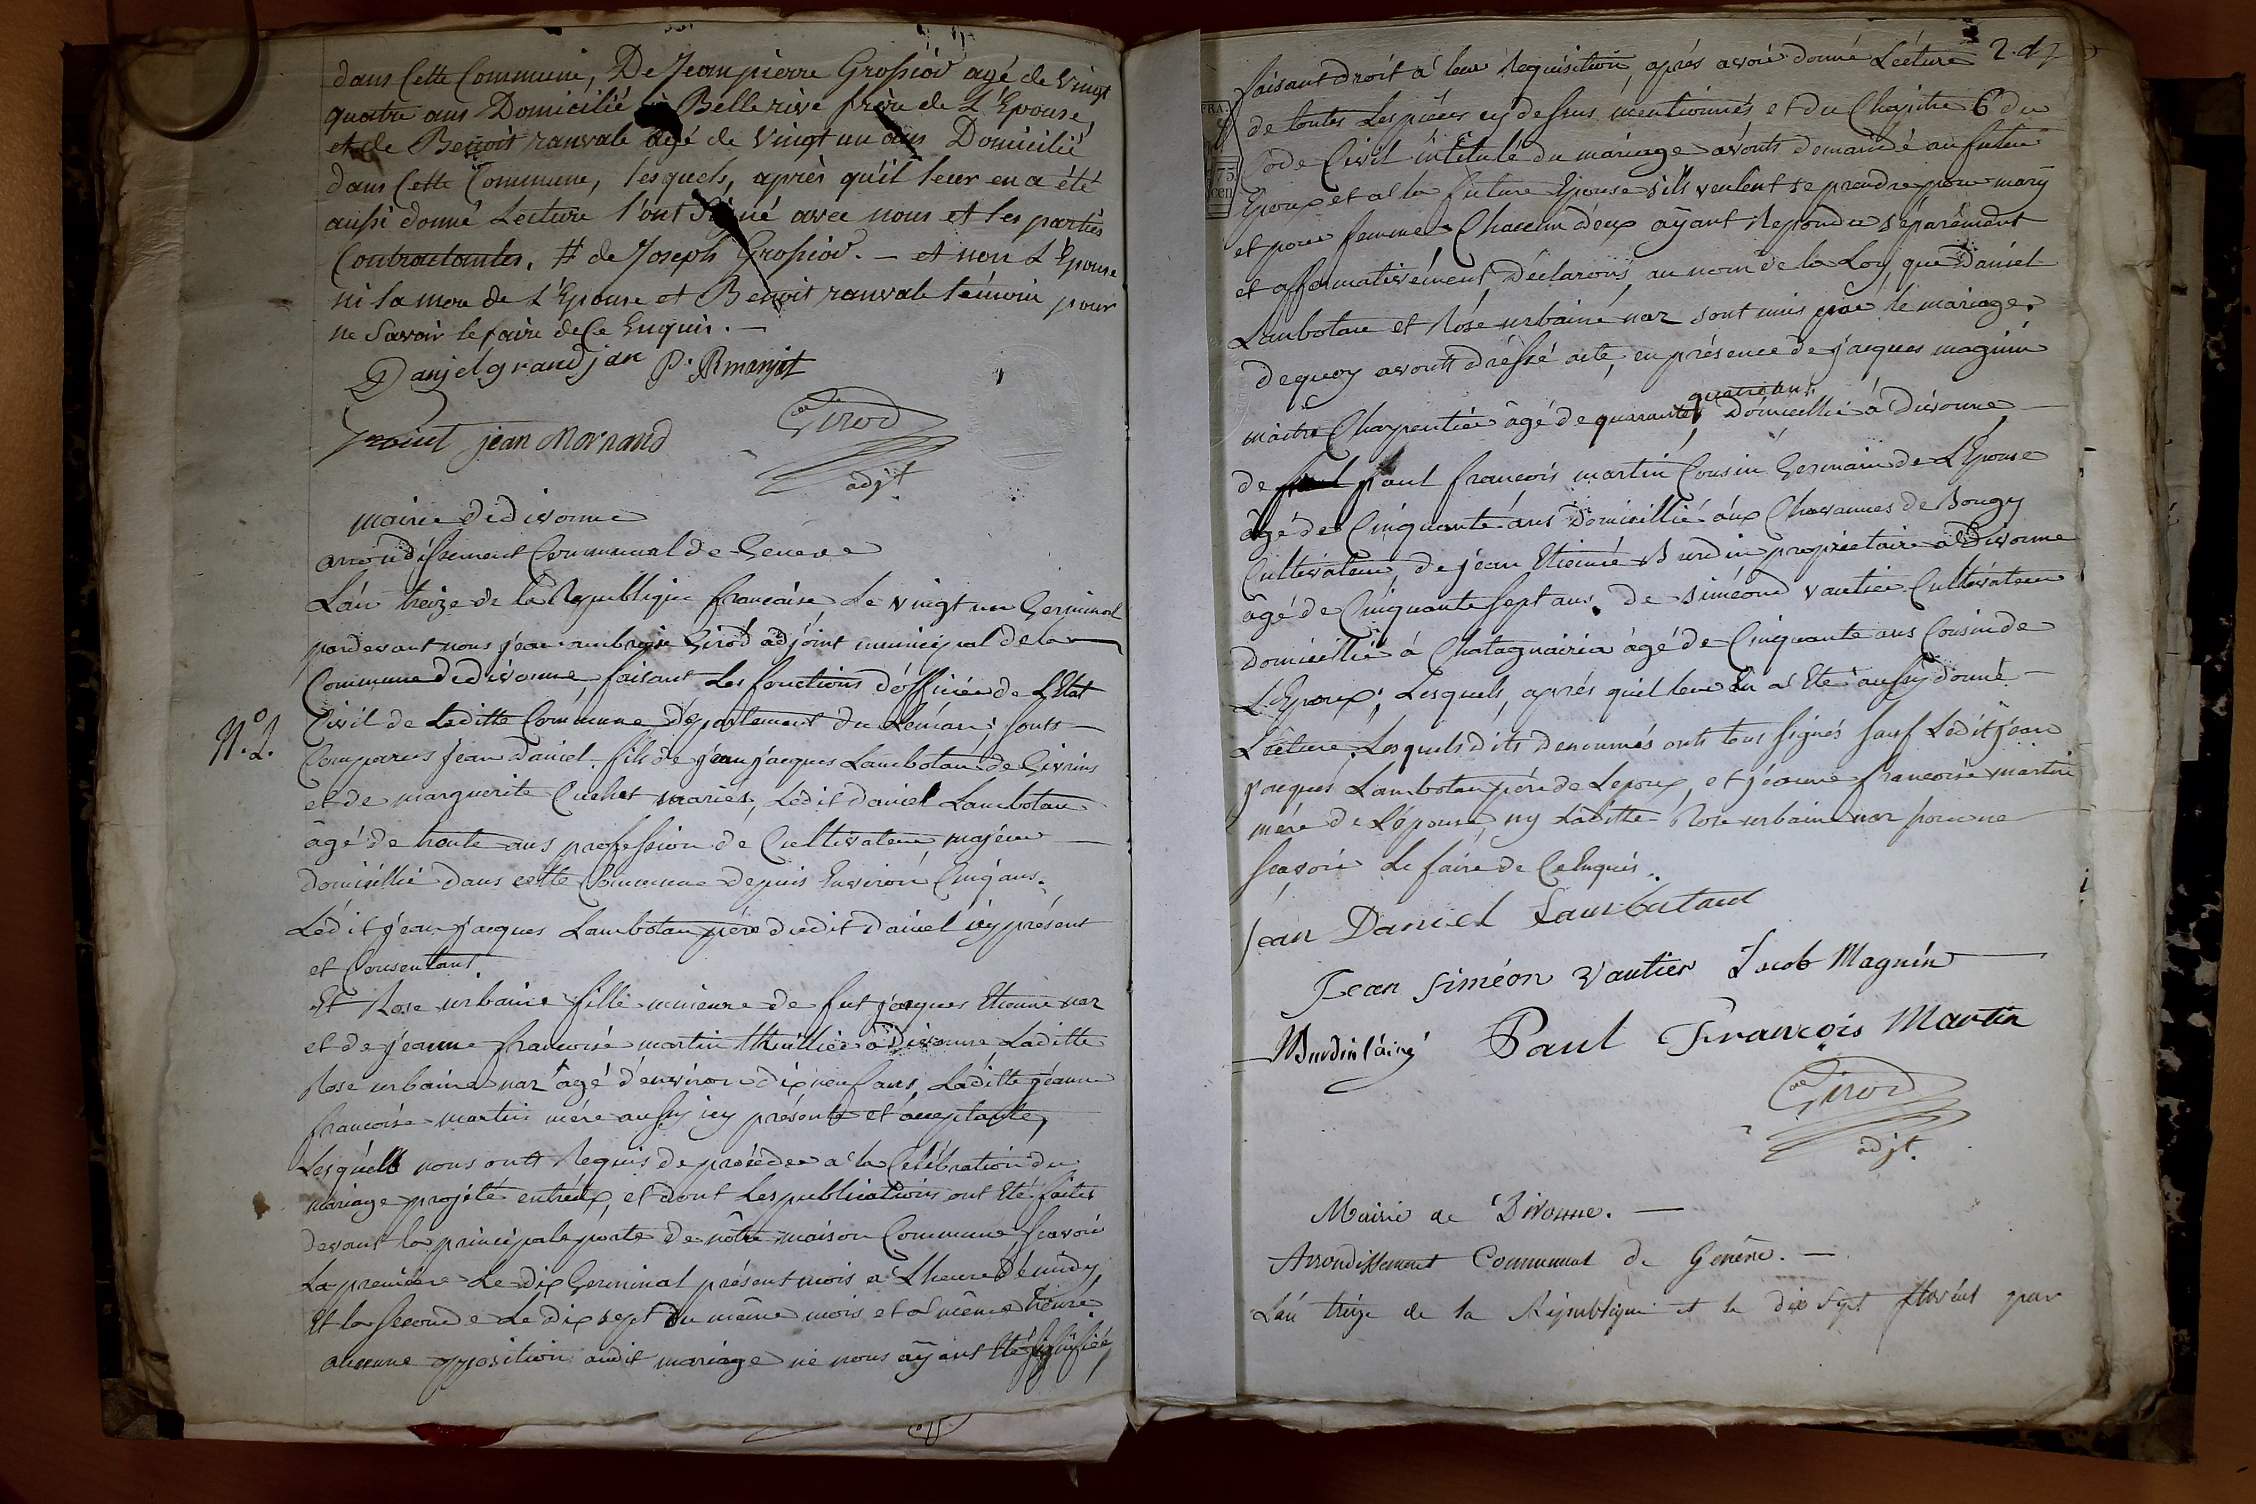 dans Cette Commune, De Jeanpierre Grossiod agé de vingt
quatre ans Domicilié à Bellerive frère de L'Epouse,
et de Benoit ranvale agé de Vingt un ans Domicilié
dans Cette Commune, lesquels, après qu'il leur en a été
aussi donné Lecture l'ont Signé avec nous et les partiés
Contractantes. # de Joseph Grossiod. — et non L'Epouse
ni la mere de L'Epouse et Benoit ranvale témoin pour
ne Savoir le faire de Ce Enquis. —
Danjel grandjan P.
jean Mornand
Girod
adjt
mairie de divonne
arrondissement Communal de Geneve
L'an treize de la Republique francaise, Le vingt un Germinal
pardevant nous jean ambroise Girod adjoint municipal de la
Commune de divonne, faisant Les fonctions d'officier de L'Etat
N.º 2.
Civil de Laditte Commune departement du Leman; sont
Comparus jean daniel fils de jean jacques Lambotau de Givrins
et de marguerite Cuchet mariés, Ledit daniel Lambotau
âgé de trente ans profession de Cultivateur, majeur
domicillié dans cette Commune depuis Environ Cinq ans.
Lédit jean jacques Lambotau père dudit daniel icy présent
et Consentant
Et Rose urbaine fille mineure de feu jacques Etienne nar
et de jeanne francoise martin à divonne, Laditte
Rose urbaine nar agé d'environ dix neuf ans, Laditte jeanne
francoise martin mère aussy icy présente et acceptante,
Lesquells nous ontt Requis de procéder a la Célébration du
mariage projété entréux, et dont Les publications ont Eté faites
devant la principale porte de nôtre maison Commune Scavoir
La premiere Le dix Germinal présent mois a L'heure de midy
Et la seconde Le dix sept du même mois et a même heure
aucune opposition audit mariage ne nous aÿant Eté signifiée,
2.
faisant droit a leur Requisition, après avoir donné Lecture
de toutes Les pièces cy dessus mentionnés et du Chapitre 6 du
Code Civil intitulé du mariage avons demandé au futur
75
cen
Epoux et a la future Epouse s'ils veulent se prendre pour marÿ
et pour femme, Chacun deux aÿant Repondu séparément
et affirmativement, Déclarons, au nom de la Loy, que Daniel
Lambotau et Rose urbaine nar sont unis par le mariage.
Dequoy avons dréssé acte, en présence de jacques magnin
quatre ans
maitre Charpentier âgé de quarante Domicillié à divonne
de paul francois martin Cousin Germain de L'Epouse
âgé de Cinquante ans Domicillié aux Chavannes de Bougy
Cultivateur, de jean Etienne Burdin proprietaire a Divonne
âgé de Cinquante sept ans. de siméond vautier Cultivateur
domicillié à Chatagnairia âgé de Cinquante ans Cousin de
L'Epoux; Lesquels, après quil leur En a Eté aussy donné
Lecture, Lesquels dits denommés ont tous signés sauf Ledit jean
jacques Lambotau père de Lepoux, et jeanne francoise martin
mére de L'épouse ny Laditte Rose urbaine nar pour ne
Scavoir Le faire de Ce Enquis.
Jean Daniel Lambotaud
Jean Siméon Vautier Jacob Magnin
Burdin l'ainé Paul François Martin
Girod
adjt.
Mairie de Divonne. —
Arrondissement Communal de Genève. —
L'an treize de la République et le dix sept floréal par